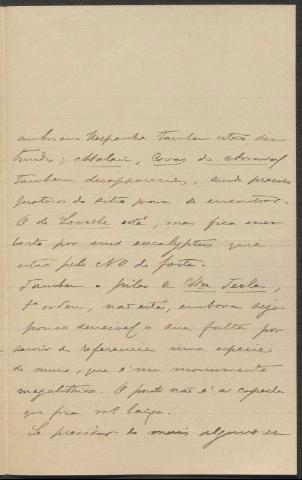 ambos em Hespanha tambem estão des
truidos; Atalaia, Covas do
tambem desapparecidos, sendo preciso
praticos do sitio para se encontrar.
O de Lovelhe está, mas fica enco
berto por uns eucalyptus que
estão pelo NO do forte.
Tambem o pilar de Sta Tecla,
1ª ordem, não está, embora seja
pouco sensivel a sua falta por
servir de referencia uma especie
de muro, que é um monumento
megalithico. O ponto não é a capella
que fica mais baixa.
Se precisar de mais algum es